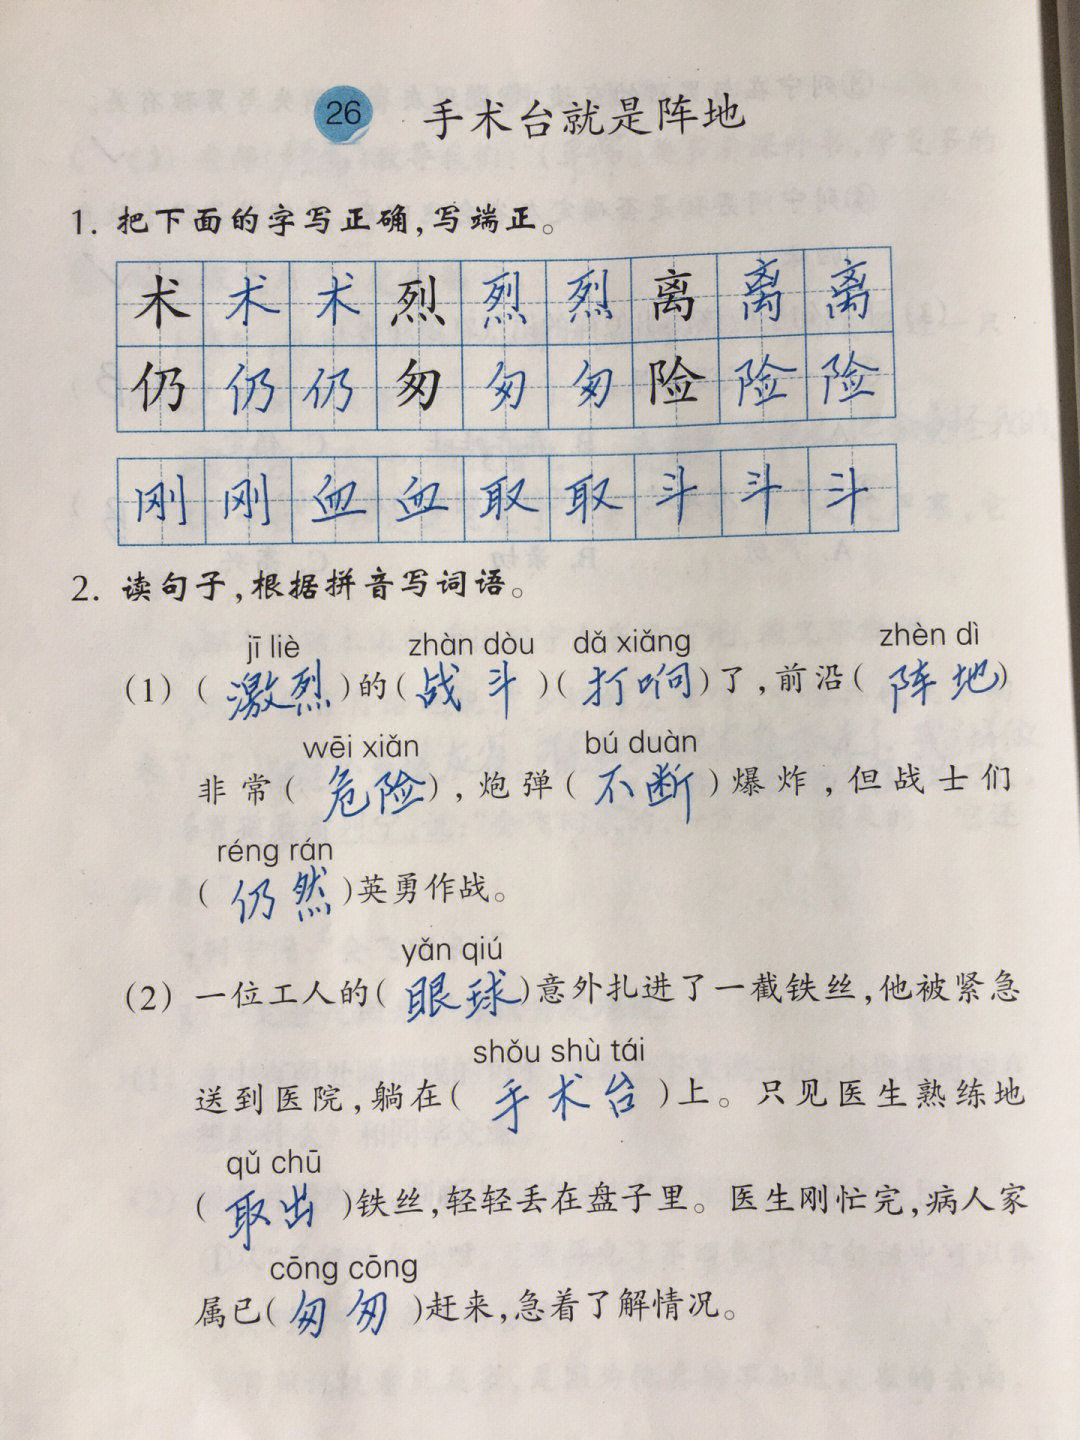 26 手术台就是阵地
1. 把下面的字写正确，写端正。
术 术 术 烈 烈 烈 离 离 离
仍 仍 仍 匆 匆 匆 险 险 险
刚 刚 血 血 取 取 斗 斗 斗
2. 读句子，根据拼音写词语。
jī liè zhàn dòu dǎ xiǎng zhèn dì
(1) (激烈)的(战斗)(打响)了，前沿(阵地)
wēi xiǎn bú duàn
非常(危险)，炮弹(不断)爆炸，但战士们
réng rán
(仍然)英勇作战。
yǎn qiú
(2) 一位工人的(眼球)意外扎进了一截铁丝，他被紧急
shǒu shù tái
送到医院，躺在(手术台)上。只见医生熟练地
qǔ chū
(取出)铁丝，轻轻丢在盘子里。医生刚忙完，病人家
cōng cōng
属已(匆匆)赶来，急着了解情况。